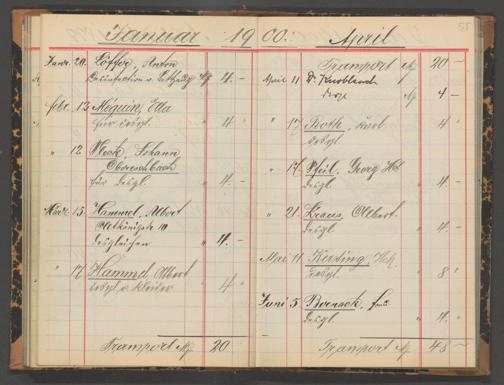 55
Januar 1900. April
Janr. 20. Löffer, Anton
4.-
Febr. 13 Méquin, Ella
für desgl. " 4 "
" 12 Fleck, Johann
Obereschbach
für desgl. " 4.-
März 15. Hammel, Albert
Altkönigstr 10
desgleichen " 4.-
" 17 Hammel Albert
desgl. v. Kleider " 4 "
Transport M 20
Transport M 20 -
April 11 Dr. Knoblauch
desgl. M 4 -
" 17 Roth, Karl
desgl. 4 "
" 17. Pfeil, Georg
desgl. " 4.-
" 21. Kraus, Albert.
desgl. " 4.-
Mai 11 Kersting,
desgl. " 8 "
Juni 5
desgl. " 4. "
Transport M 48 -